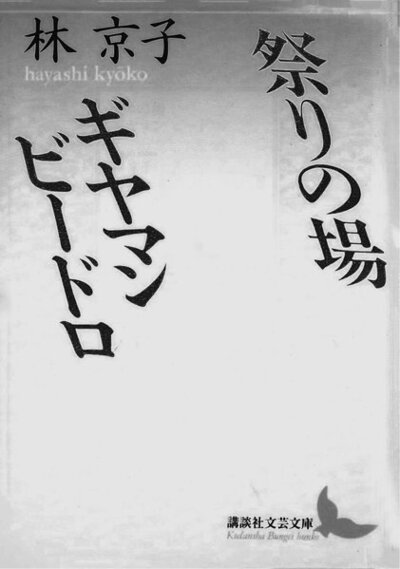 林 京子
hayashi kyoko
祭りの場
ギヤマン
ビードロ
講談社文芸文庫
Kodansha Bungei bunko